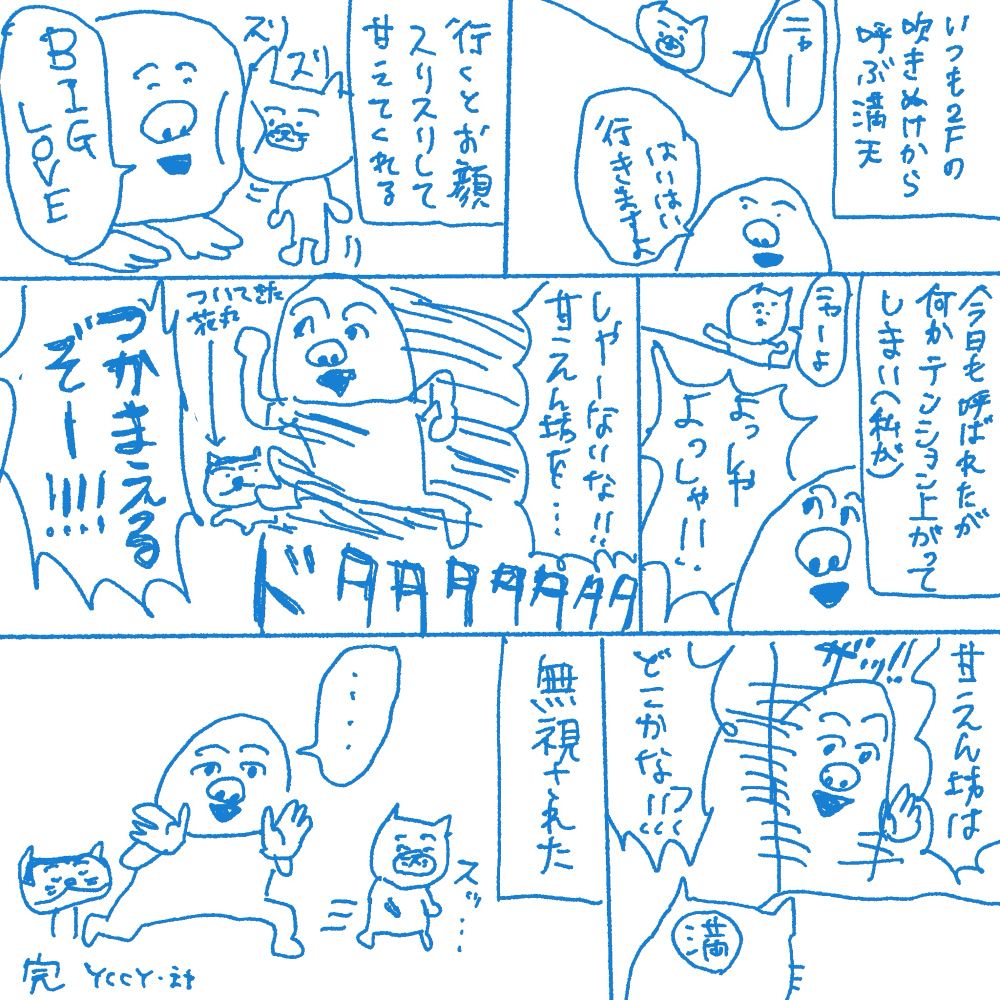 いつも2Fの
吹きぬけから
呼ぶ満天
ニャーー
はいはい
行きますよ
行くとお顔
スリスリして
甘えてくれる
ズリ
ズリ
BIG
LOVE
今日も呼ばれたが
何かテンション上がって
しまい(私が)
ニャーよ
よっしゃ
よっしゃ!!
しゃーないな!!
甘えん坊を…
ついてきた
花丸
ドタタタタタタタ
つかまえる
ぞー!!!!
甘えん坊は
ガッ!!
どこかな!!??
満
無視された
・・・・
ズッ…
完